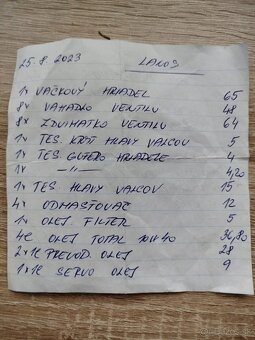 25. 8. 2023 LANOS
1x VAČKOVÝ HRIADEL 65
8x VAHADLO VENTILU 48
8x ZDVIHATKO VENTILU 64
1x TES. KRYT HLAVY VALCOV 5
1x TES. GUFERO HRIADELE 4
1x —"— 4,20
1x TES. HLAVY VALCOV 15
4x ODMASŤOVAČ 12
1x OLEJ. FILTER 5
4L OLEJ TOTAL 10W40 36,80
2x1L PREVOD. OLEJ 28
1x1L SERVO OLEJ 9